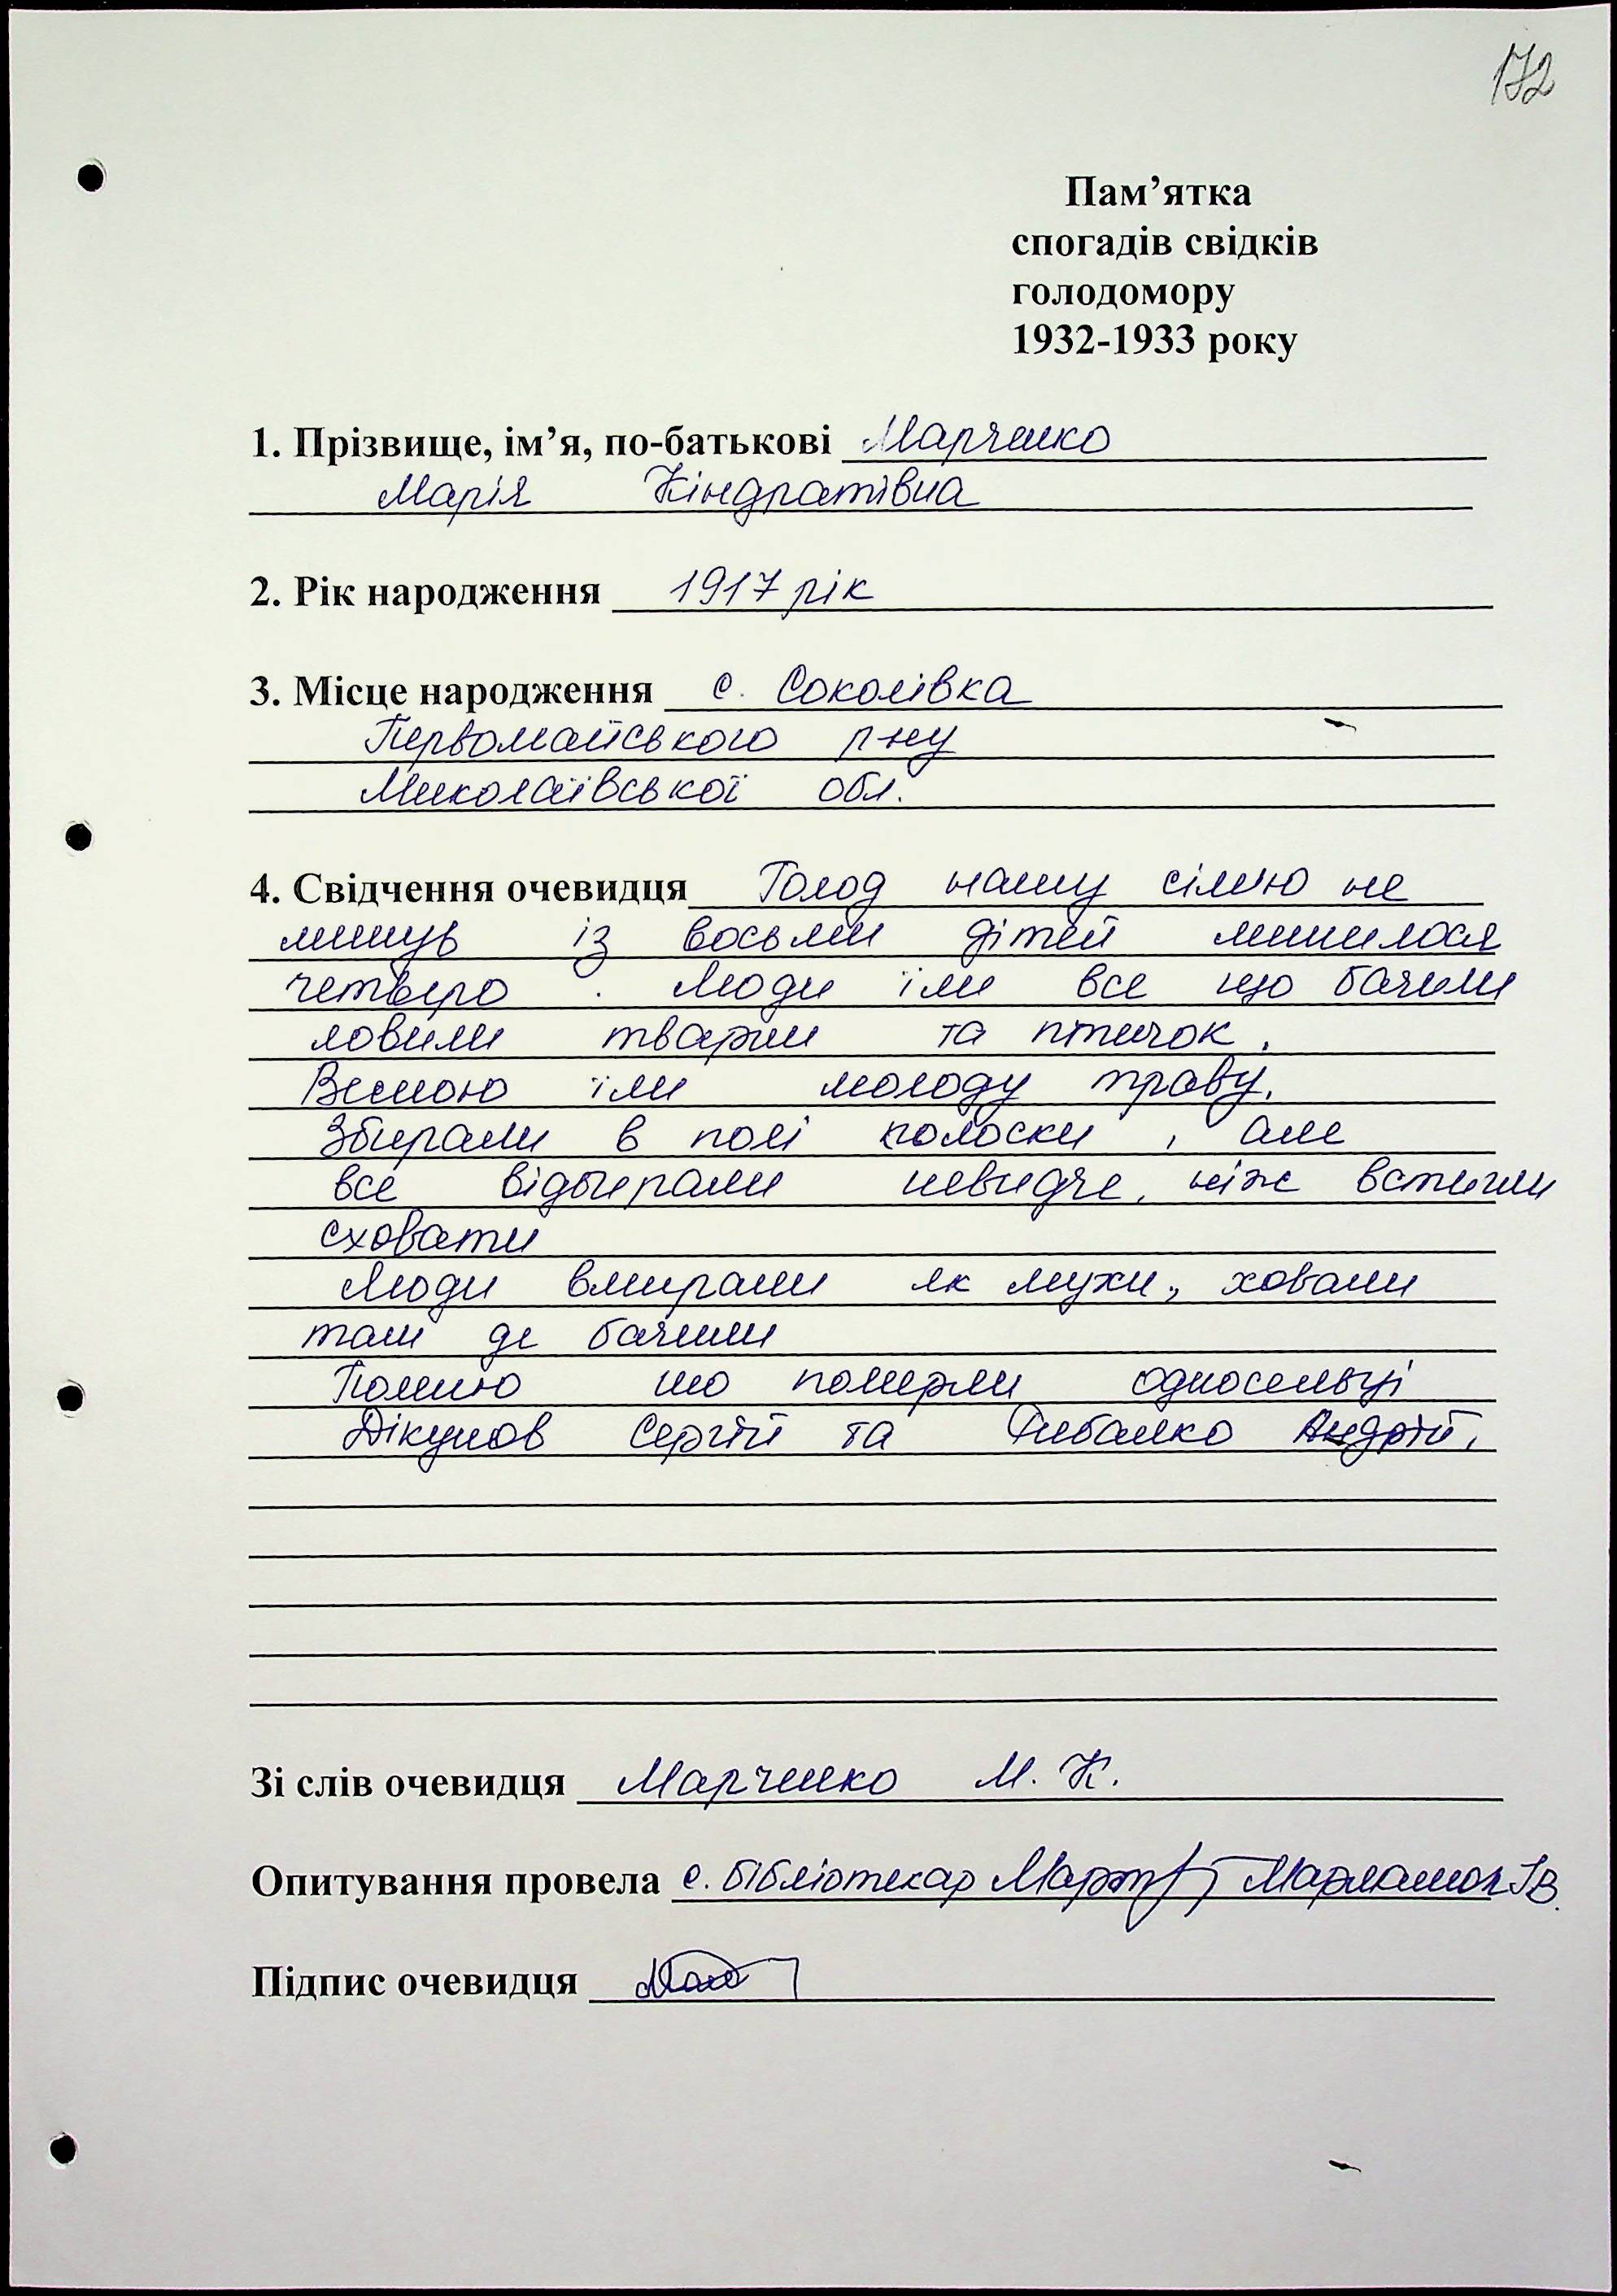 172
Пам’ятка
спогадів свідків
голодомору
1932-1933 року
1. Прізвище, ім’я, по-батькові Марченко
Марія Кіндратівна
2. Рік народження 1917 рік
3. Місце народження с. Соколівка
Первомайського р-ну
Миколаївської обл.
4. Свідчення очевидця Голод нашу сімю не
минув із восьми дітей лишилося
четверо. Люди їли все що бачили
ловили тварин та птичок.
Весною їли молоду траву.
Збирали в полі колоски, але
все відбирали швидче, ніж встигли
сховати
Люди вмирали як мухи, ховали
там де бачили
Помню що померли односельці
Дікунов Сергій та Рибалко Андрій.
Зі слів очевидця Марченко М. К.
Опитування провела с. бібліотекар
Підпис очевидця